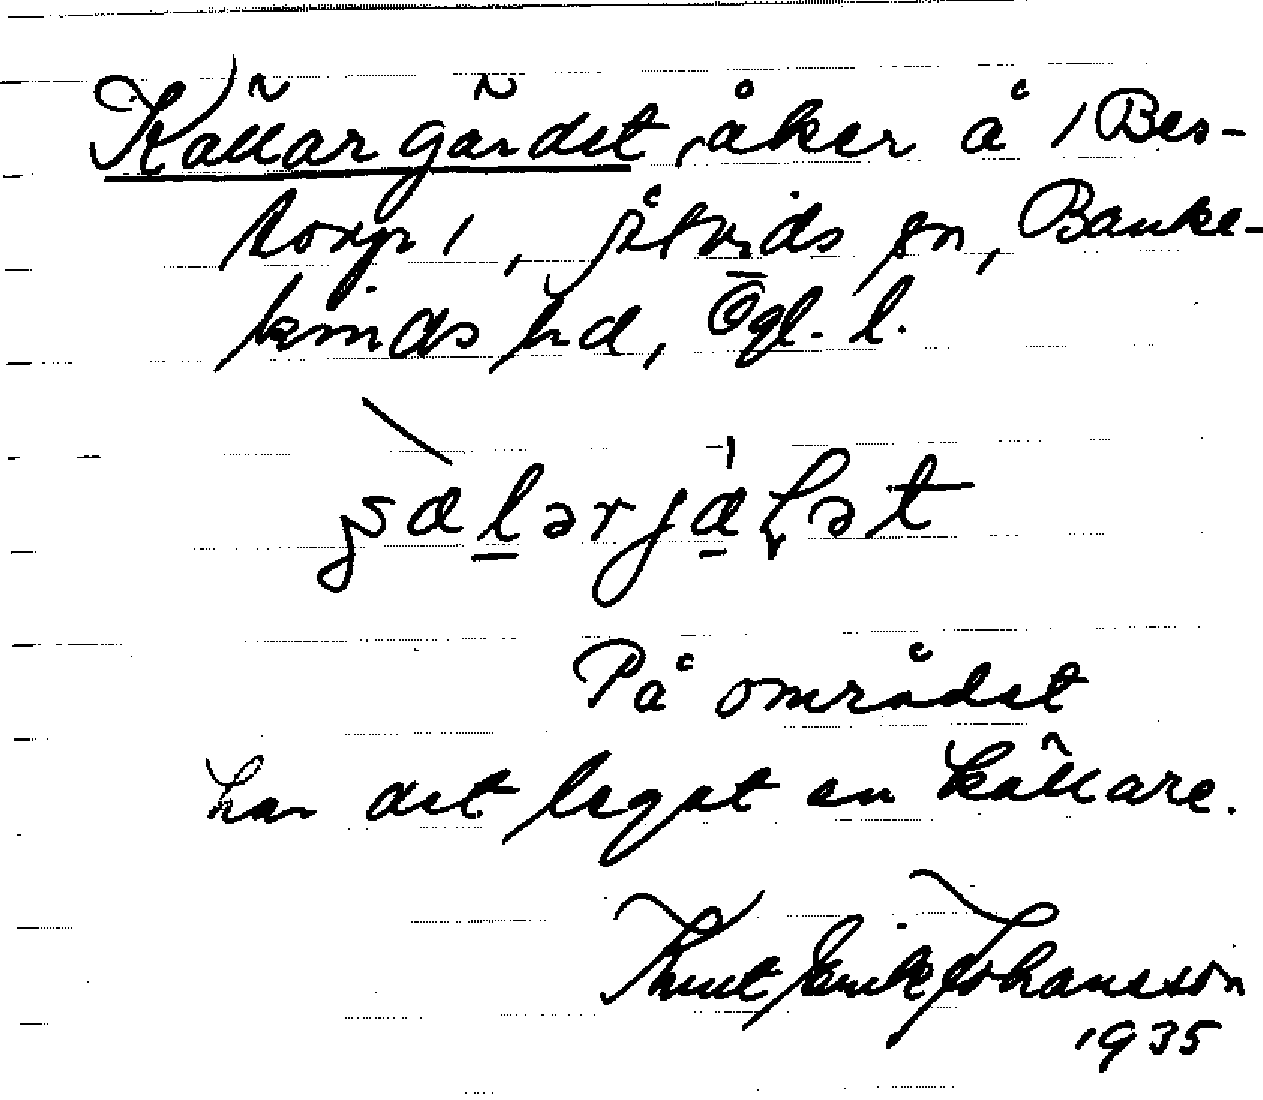 Källargärdet, åker å 1 Bes-
torp 1, Åtvids sn, Banke-
kinds hd, Ögl. l.
På området
har det legat en källare.
Knut Erik Johansson
1935